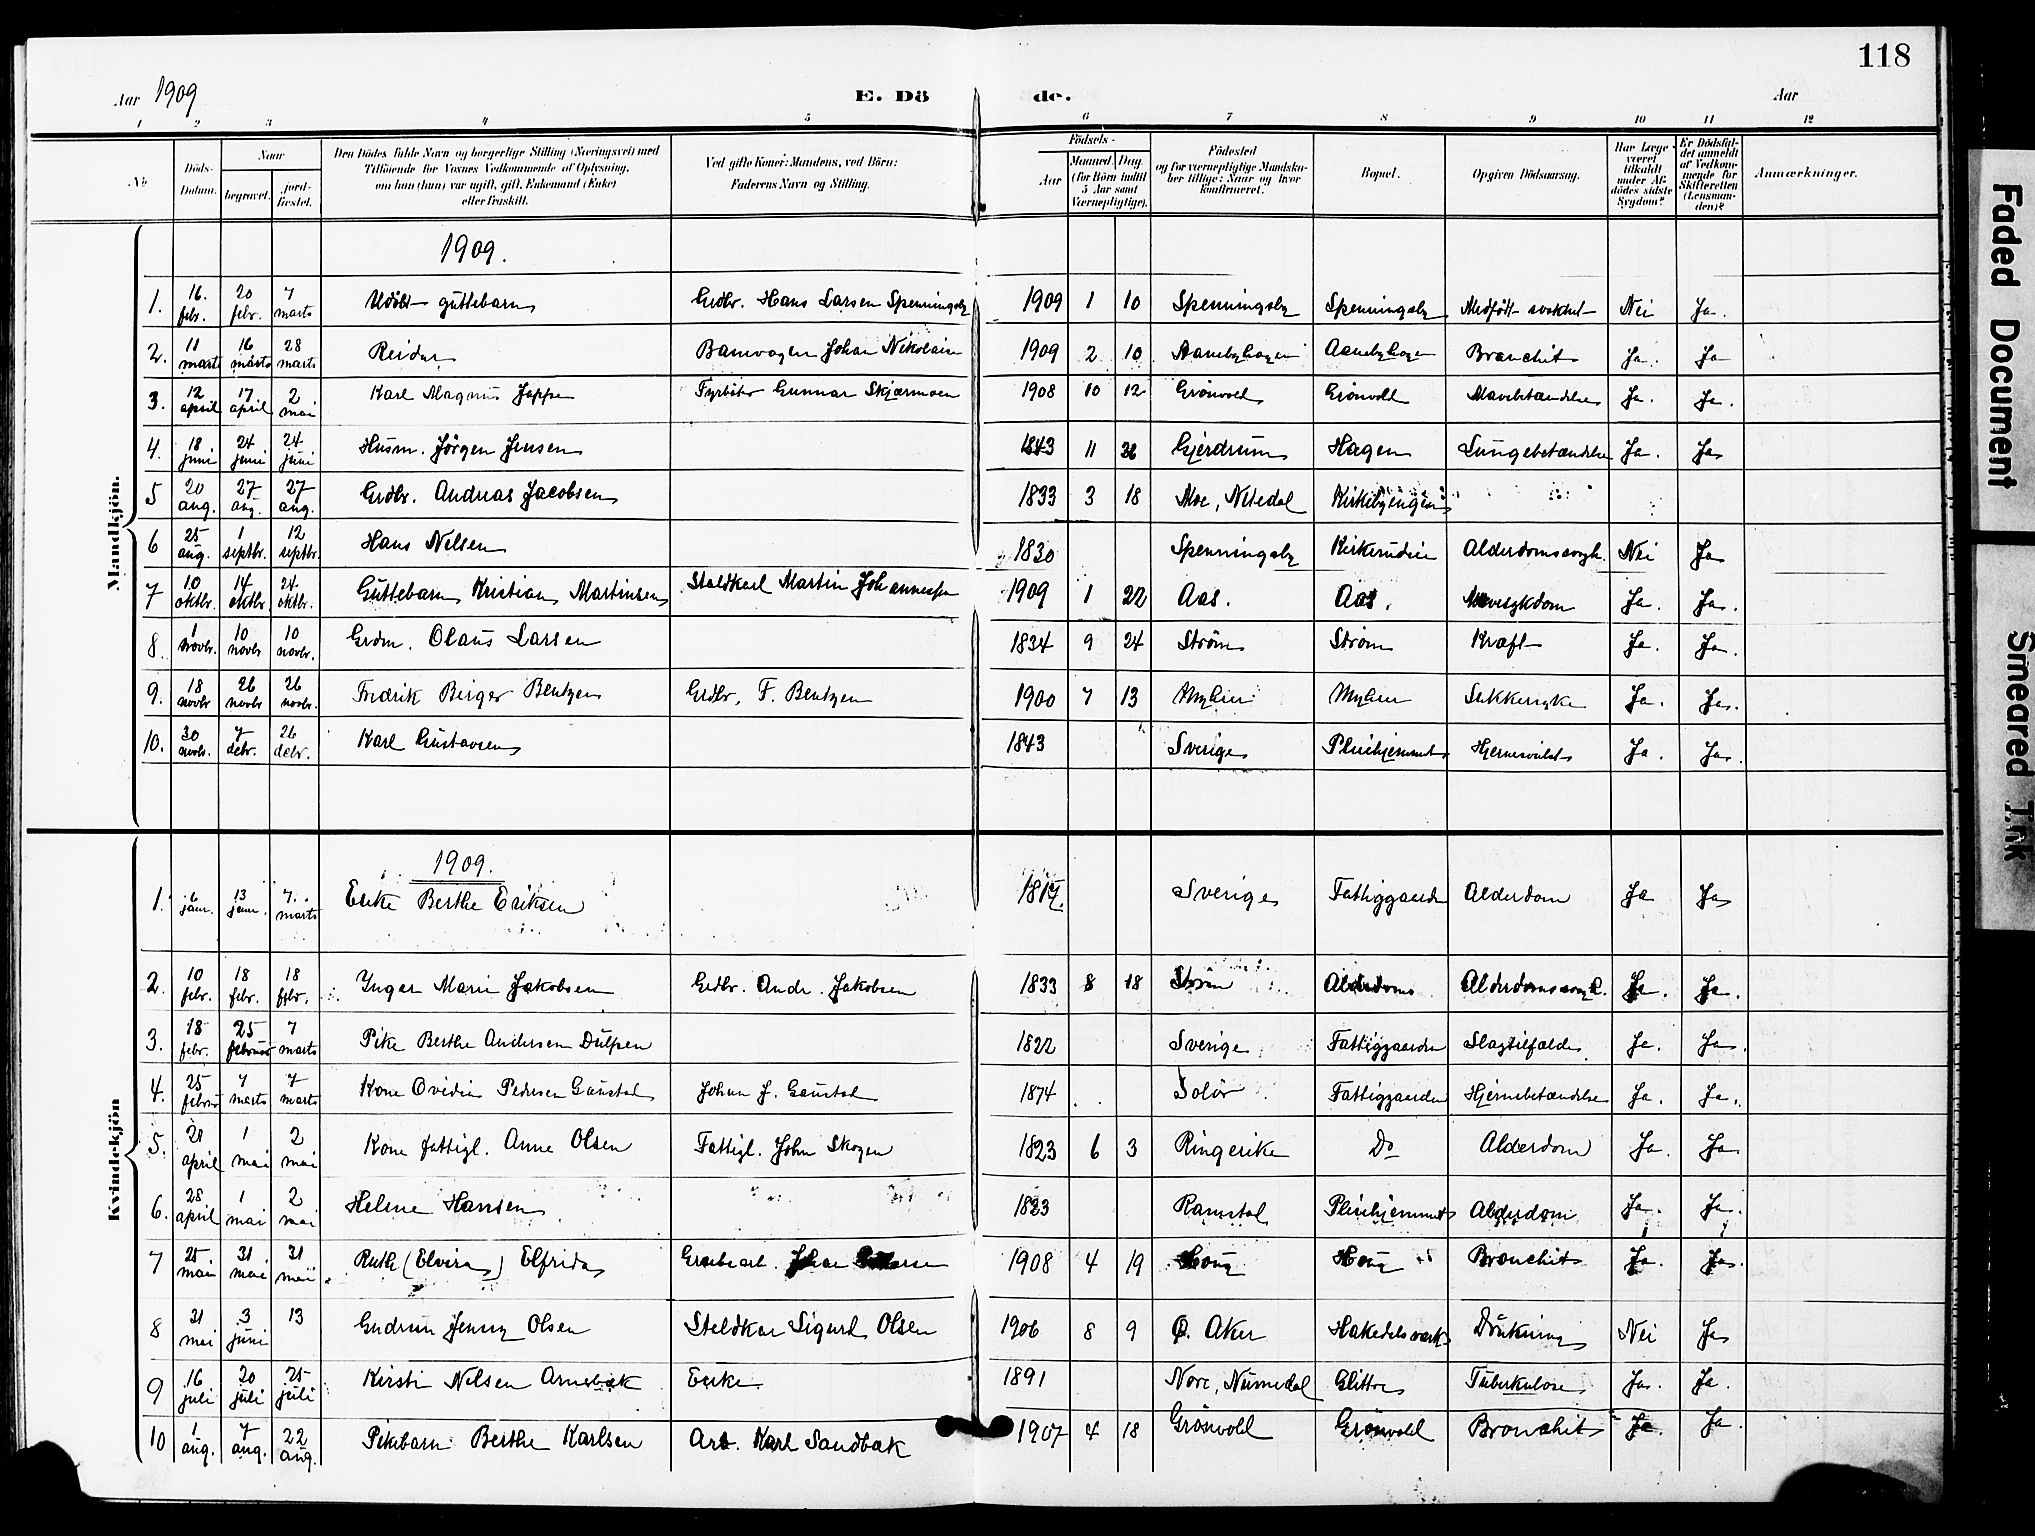 118
Aar 1909
E. Döde.
Aar
1 2 3 4 5 6 7 8 9 10 11 12
No
Döds-Datum.
Naar
begravet.
jord-fæstet.
Den Dödes fulde Navn og borgerlige Stilling (Næringsvei) med Tilföiende for Voxnes Vedkommende af Oplysning, om han (hun) var ugift, gift, Enkemand (Enke) eller fraskilt.
Ved gifte Koner: Mandens, ved Börn: Faderens Navn og Stilling.
Födsels-
Aar
Maaned. Dag.
(for Börn indtil 5 Aar samt Værnepligtige).
Födested og for værnepligtige Mandskaber tillige: Naar og hvor konfirmeret.
Bopæl.
Opgiven Dödsaarsag.
Har Læge været tilkaldt under Afdödes sidste Sygdom?
Er Dödsfaldet anmeldt af Vedkommende for Skifteretten (Lensmanden)?
Anmærkninger.
Mandkjön.
1909.
1. 16. febr. 20 febr. 7 marts Udöbt guttebarn Grdbr. Hans Larsen Spenningsby 1909 1 10 Spenningsby Spenningsby Medfödt svakhet Nei Ja.
2. 11 marts 16 marts 28 marts Reidar Banevogter Johan Nikolaisen 1909 2 10 Aanebyhagen Aanebyhagen Bronchit Ja. Ja
3. 12 april 17 april 2 mai Karl Magnus Fyrböter Gunnar Skjærmoen 1908 10 12 Grönvold Grönvold Mavebetændelse Ja. Ja.
4. 18 juni 24 juni 24 juni Husm. Jörgen Jensen 1843 11 Gjerdrum Hagen Lungebetændelse Ja. Ja
5 20 aug. 27 aug. 27 aug. Grdbr. Andreas Jacobsen 1833 3 18 Moe, Nitedal Kirkebyengen
6 25 aug. 1 septbr. 12 septbr. Hans Nilsen 1830 Spenningsby Kirkerudeie Alderdomssvagh. Nei Ja
7 10 oktbr. 14 oktbr. 24 oktbr. Guttebarn Kristian Martinsen Staldkarl Martin Johannessen 1909 1 22 Aas. Aas. Mavesykdom Ja. Ja.
8. 1 novbr. 10 novbr 10 novbr. Grdm. Olaus Larsen 1834 9 24 Ström Ström Kræft Ja. Ja.
9. 18 novbr 26 novbr 26 novbr. Fredrik Birger Bentzen Grdbr. F. Bentzen 1900 7 13 Myhrer Myhrer Sukkersyke Ja. Ja.
10. 30 novbr. 7 debr. 26 debr. Karl Gustavsen 1843 Sverige Pleiehjemmet Hjernesvulst Ja. Ja.
Kvindekjön
1909.
1. 6 janr. 13 janr. 7. marts Enke Berthe Eriksen 1817. Sverige Fattiggaarden Alderdom Ja Ja
2. 10 febr. 18 febr. 18 febr. Inger Marie Jakobsen Grdbr. Andr. Jakobsen 1833 8 18 Ström Alderdoms Alderdomssvagh. Ja. Ja.
3. 18 febr. 25 februar 7 marts Pike Berthe Andersen Dulpen 1822 Sverige Fattiggaarden Slagtilfælde Ja. Ja.
4. 25 februar 7 marts 7 marts Kone Ovidia Pedersen Gaustad Johan J. Gaustad 1874 Solör Fattiggaarden Hjernebetændelse Ja. Ja.
5. 21 april 1 mai 2 mai Kone fattigl. Anne Olsen Fattigl. John Skogen 1823 6 3 Ringerike Do Alderdom Ja. Ja
6. 28 april 1 mai 2 mai Helene Hansen 1823 Ramstad Pleiehjemmet Alderdom Ja. Ja.
7 25 mai 31 mai 31 mai Ruth (Elvira) Elfrida Grubearb. Johan 1908 4 19 Houg Houg Bronchit Ja. Ja.
8 31 mai 3 juni 13 Gudrun Jenny Olsen Staldkar Sigurd Olsen 1906 8 9 Ö. Aker Hakedalsverk Drukning Nei Ja
9 16 juli 20 juli 25 juli Kirsti Nilsen Arnebæk Enke 1891 Nore, Numedal Glittre Tuberkulose Ja. Ja.
10 1 aug. 7 aug. 22 aug. Pikebarn Berthe Karlsen Arb. Karl Sandbæk 1907 4 18 Grönvold Grönvold Bronchit Ja. Ja.
Faded Document
Smeared Ink